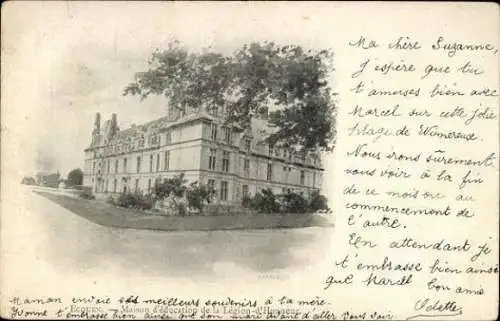 Ma chère Suzanne,
J'espère que tu
t'amuses bien avec
Marcel sur cette jolie
plage de Wimereux.
Nous irons sûrement
vous voir à la fin
de ce mois ou au
commencement de
l'autre.
En attendant je
t'embrasse bien ainsi
que Marcel Ton amie
Odette
ECOUEN. — Maison d'éducation de la Légion-d'Honneur
Maman envoie ses meilleurs souvenirs à ta mère
Yvonne t'embrasse bien ainsi que son mari d'aller vous voir